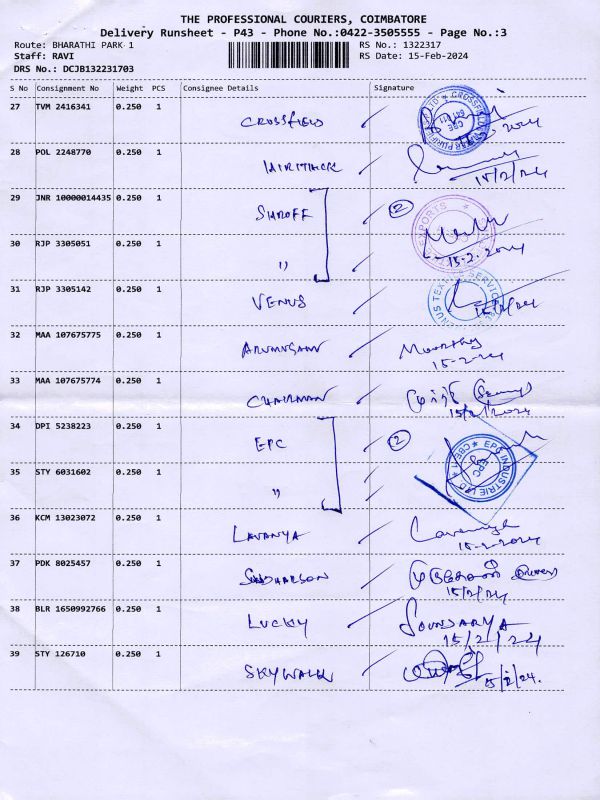 THE PROFESSIONAL COURIERS, COIMBATORE
Delivery Runsheet - P43 - Phone No.:0422-3505555 - Page No.:3
Route: BHARATHI PARK 1 RS No.: 1322317
Staff: RAVI RS Date: 15-Feb-2024
DRS No.: DCJB132231703
S No Consignment No Weight PCS Consignee Details Signature
27 TVM 2416341 0.250 1
CROSSFIELD
28 POL 2248770 0.250 1
15/2/24
29 JNR 10000014435 0.250 1
SHROFF 2
EXPORTS
30 RJP 3305051 0.250 1
" 15-2-2024
31 RJP 3305142 0.250 1
VENUS VENUS TEXTILE SERVICES
32 MAA 107675775 0.250 1
ARUMUGAM Moorthy
15-2-24
33 MAA 107675774 0.250 1
CHAIRMAN
15/2/2024
34 DPI 5238223 0.250 1
EPC 2
EPC INDUSTRIE LTD
CBE-11
EPC
35 STY 6031602 0.250 1
"
36 KCM 13023072 0.250 1
LAVANYA Lavanya
15-2-2024
37 PDK 8025457 0.250 1
SUDHARSON
15/2/24
38 BLR 1650992766 0.250 1
LUCKY SOUNDARYA
15/2/24
39 STY 126710 0.250 1
SKYWALK 15/2/24.